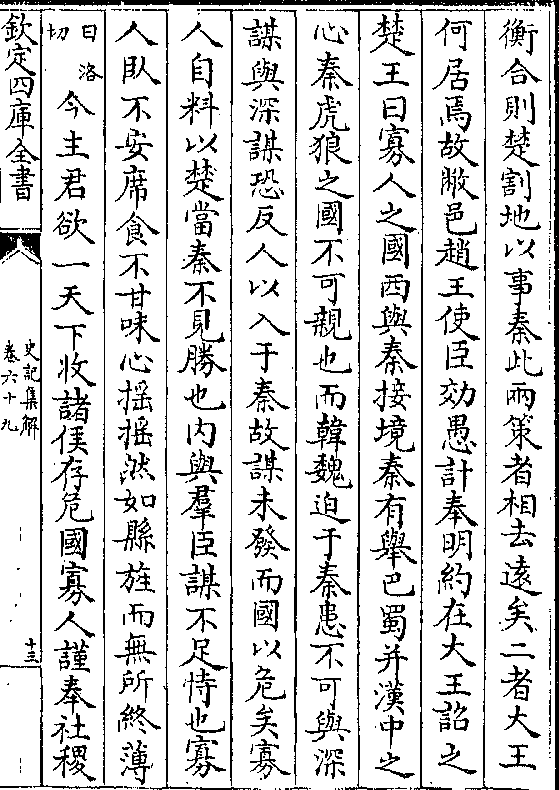 衡合則楚割地以事秦此兩策者相去逺矣二者大王
何居焉故敝邑趙王使臣効愚計奉明約在大王詔之
楚王曰寡人之國西與秦接境秦有舉巴蜀并漢中之
心秦虎狼之國不可親也而韓魏迫于秦患不可與深
謀與深謀恐反人以入于秦故謀未發而國以危矣寡
人自料以楚當秦不見勝也内與羣臣謀不足恃也寡
人臥不安席食不甘味心揺揺然如縣旌而無所終薄
白洛切今主君欲一天下收諸侯存危國寡人謹奉社稷
欽定四庫全書
史記集解
卷六十九
十三